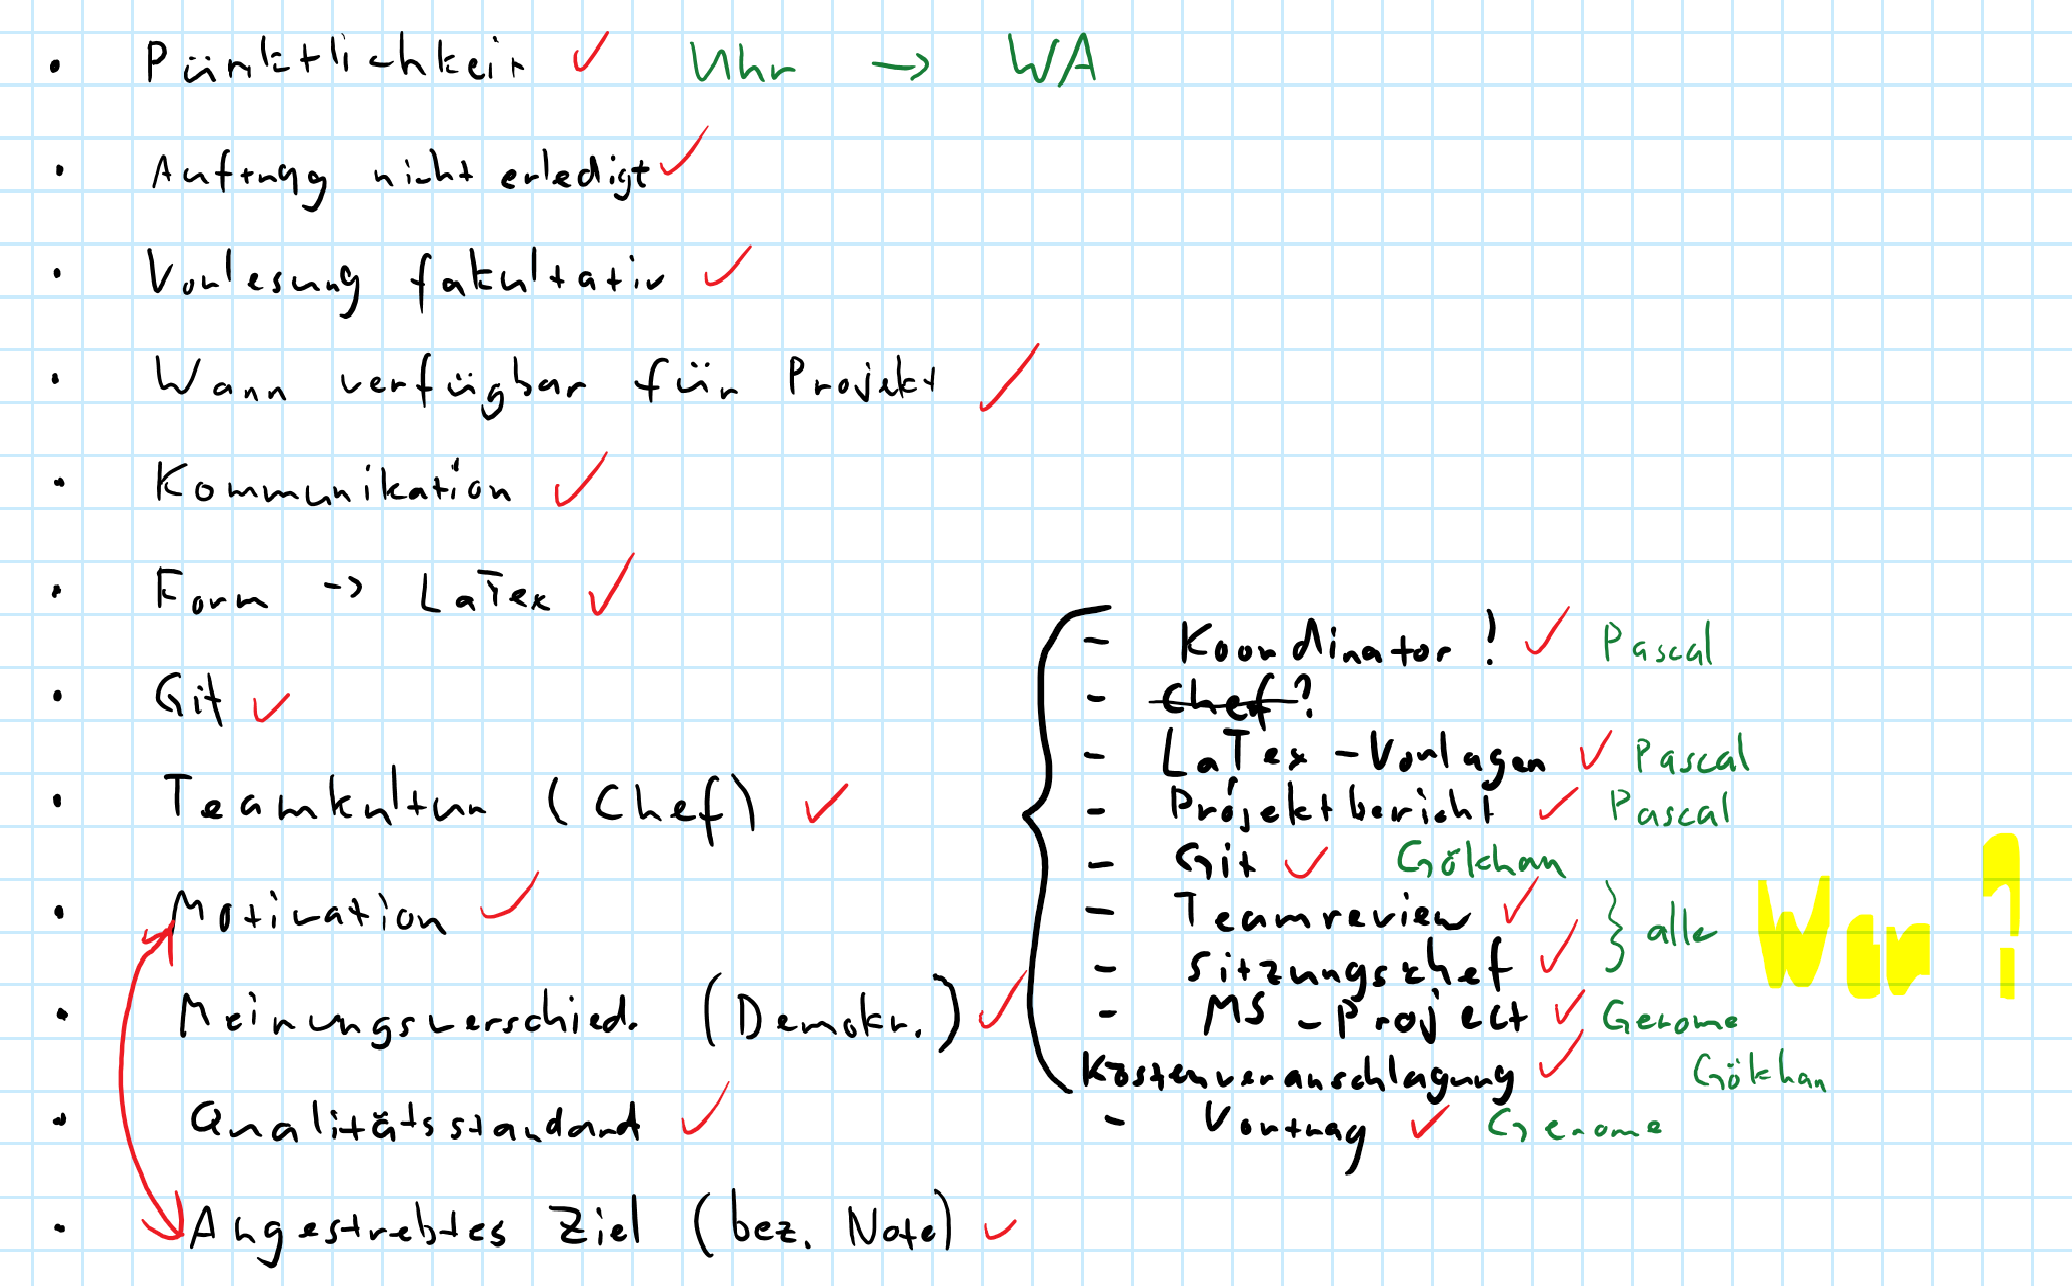 • Pünktlichkeit ✓ Uhr → WA
• Auftrag nicht erledigt ✓
• Vorlesung fakultativ ✓
• Wann verfügbar für Projekt ✓
• Kommunikation ✓
• Form -> LaTex ✓
• Git ✓
• Teamkultur (Chef) ✓
• Motivation ✓
• Meinungsverschied. (Demokr.) ✓
• Qualitätsstandard ✓
• Angestrebtes Ziel (bez. Note) ✓
- Koordinator ! ✓ Pascal
- Chef?
- LaTex - Vorlagen ✓ Pascal
- Projektbericht ✓ Pascal
- Git ✓ Gökhan
- Teamreview ✓
- Sitzungschef ✓
} alle
Wer ?
- MS - Project ✓ Gerome
Kostenveranschlagung ✓ Gökhan
- Vortrag ✓ Gerome